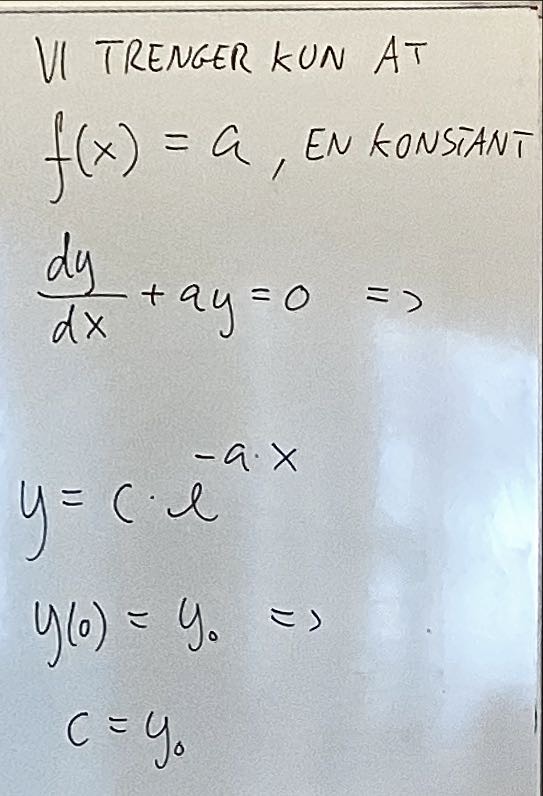 VI TRENGER KUN AT
f(x) = a, EN KONSTANT
dy/dx + ay = 0 =>
y = c · e^(-a·x)
y(0) = y₀ =>
c = y₀